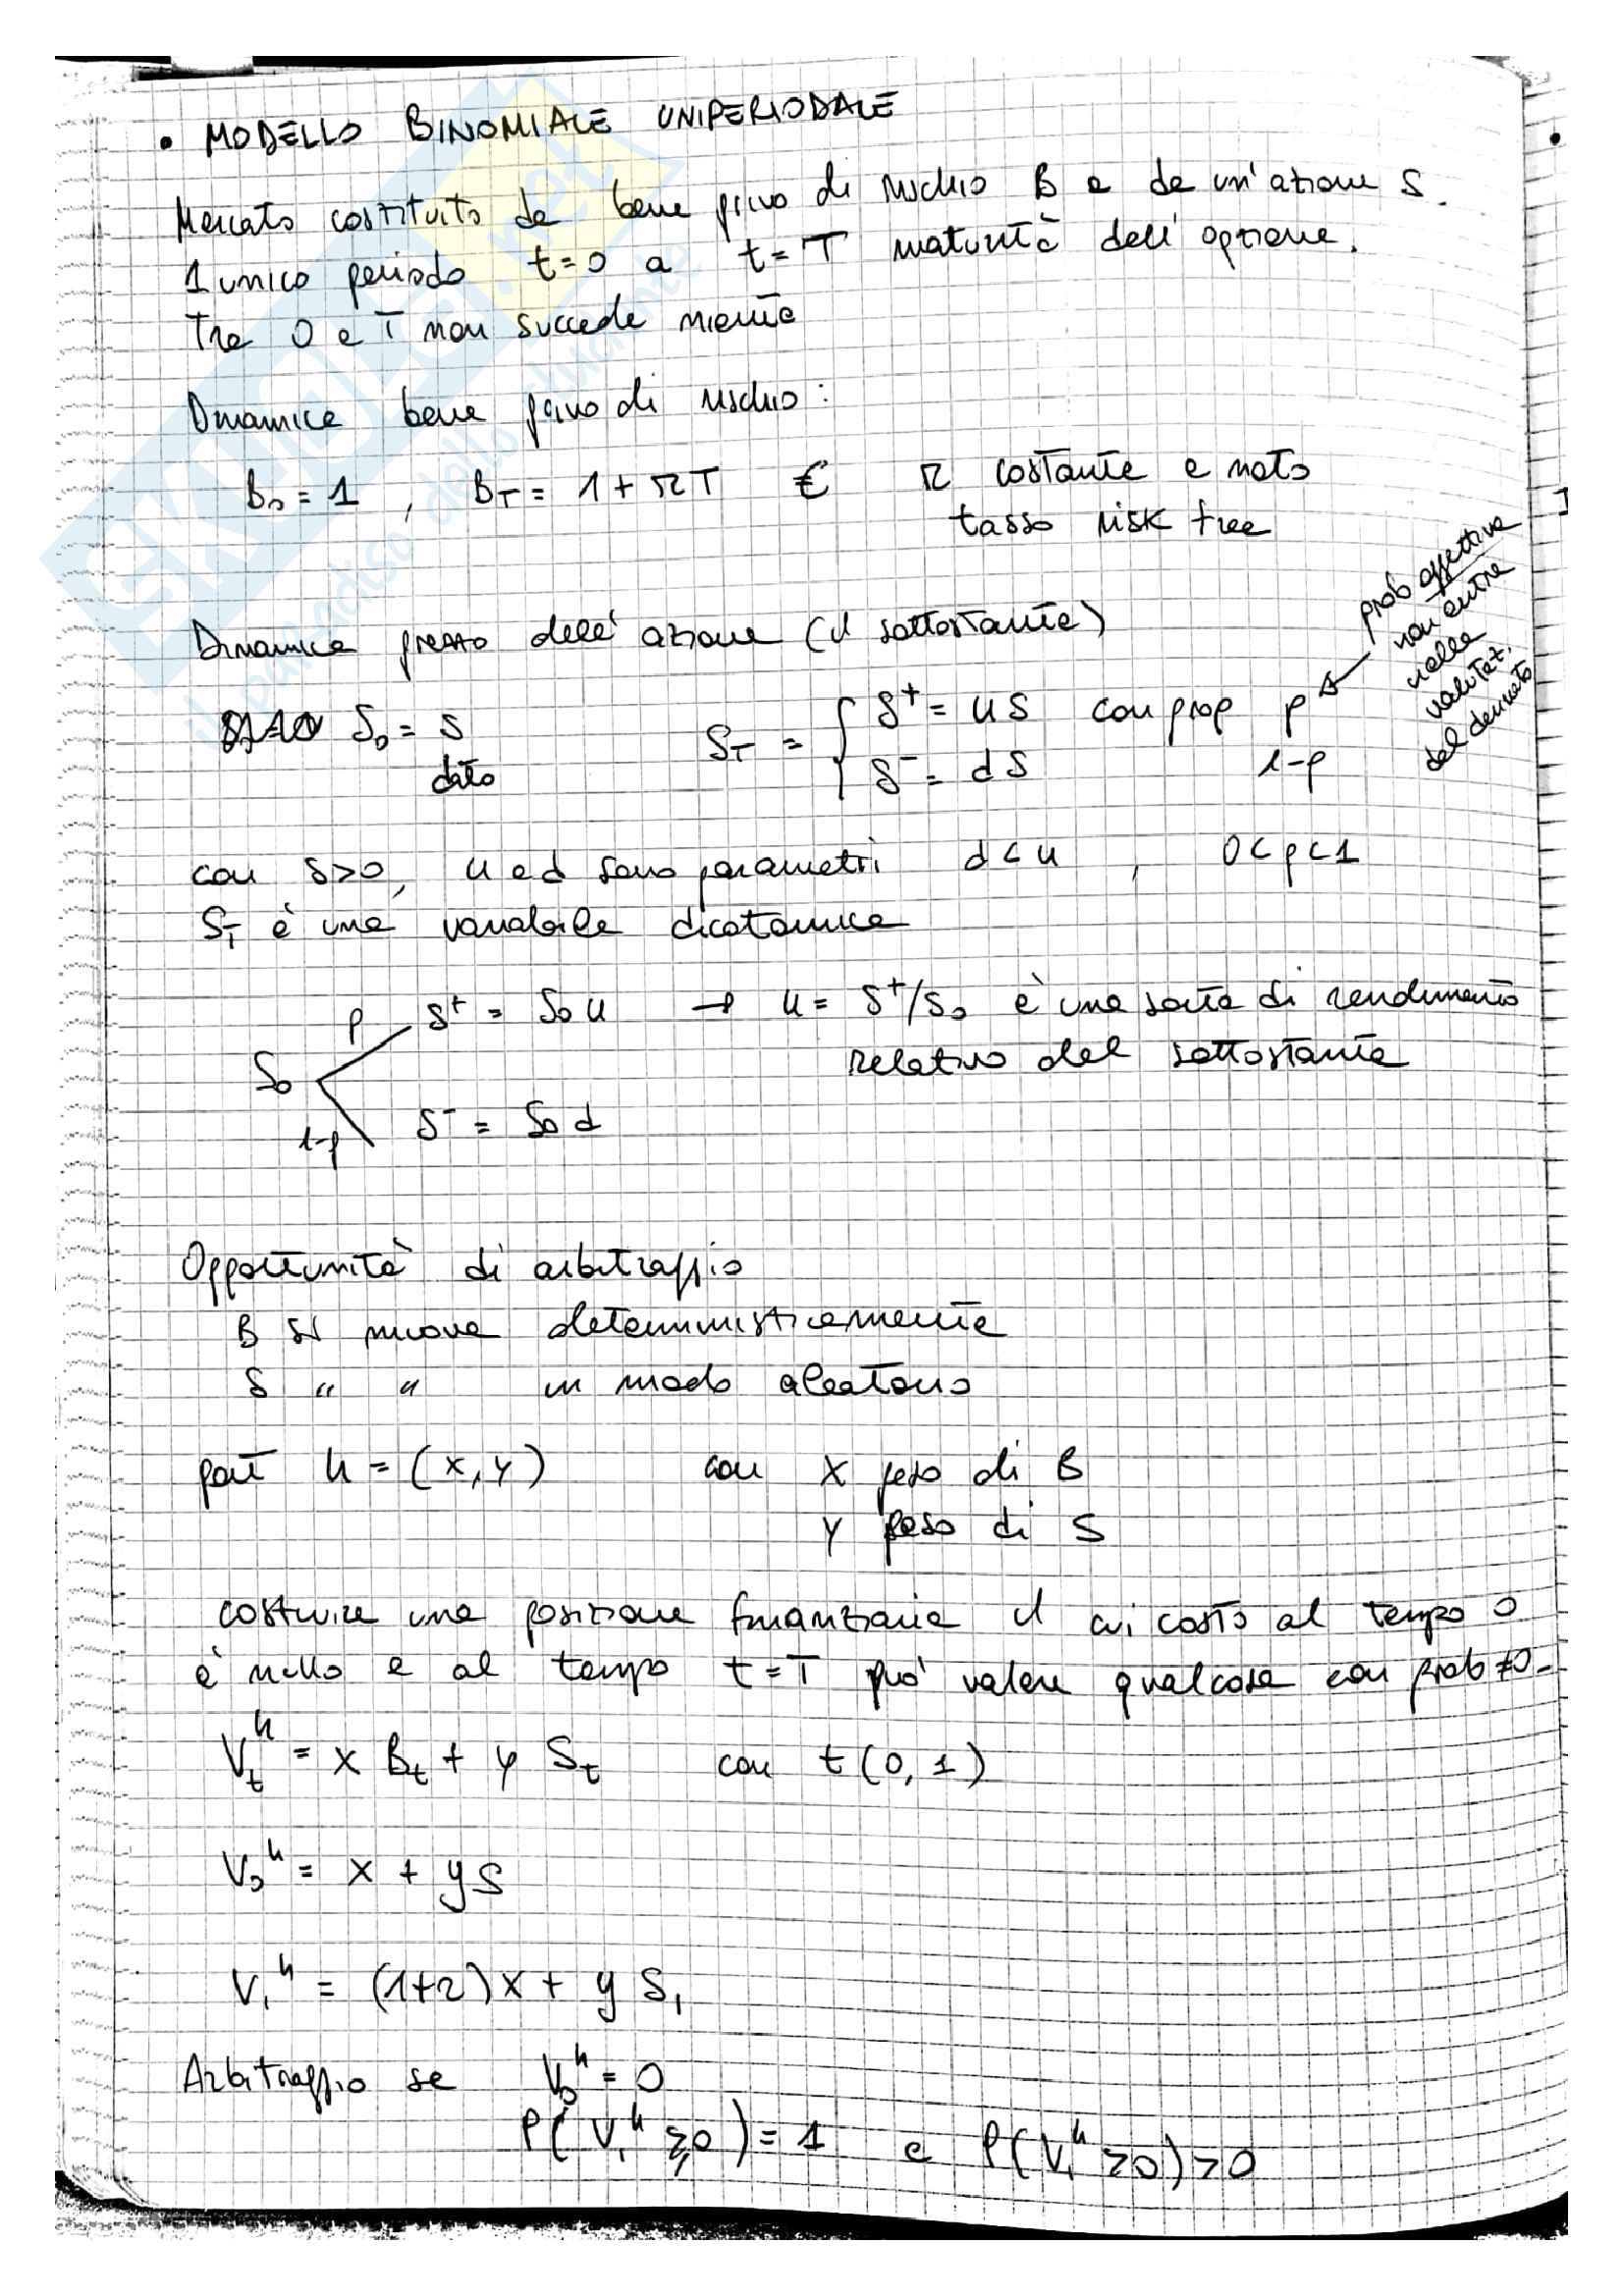 • MODELLO BINOMIALE UNIPERIODALE
Mercato costituito da bene privo di rischio B e da un'azione S.
1 unico periodo t=0 a t=T maturità dell'opzione.
Tra 0 e T non succede niente
Dinamica bene privo di rischio:
B₀ = 1 , B_T = 1 + rT € r costante e noto
tasso risk free
prob effettiva
non entra
nella
valutaz.
del derivato
Dinamica prezzo dell'azione (il sottostante)
S₀ = s
dato
S_T = { S⁺ = us con prop p
S⁻ = ds 1-p
con s>0, u e d sono parametri d<u , 0<p<1
S_T è una variabile dicotomica
p S⁺ = S₀u → u = S⁺/S₀ è una sorta di rendimento
S₀ relativo del sottostante
1-p S⁻ = S₀d
Opportunità di arbitraggio
B si muove deterministicamente
S " " in modo aleatorio
port h = (x, y) con x peso di B
y peso di S
costruire una posizione finanziaria il cui costo al tempo 0
è nullo e al tempo t=T può valere qualcosa con prob ≠0.
V_t^h = x B_t + y S_t con t(0,1)
V₀^h = x + ys
V₁^h = (1+r)x + y S₁
Arbitraggio se V₀^h = 0
P(V₁^h ≥0) = 1 e P(V₁^h >0)>0
SKUOLA.net
il paradiso dello studente